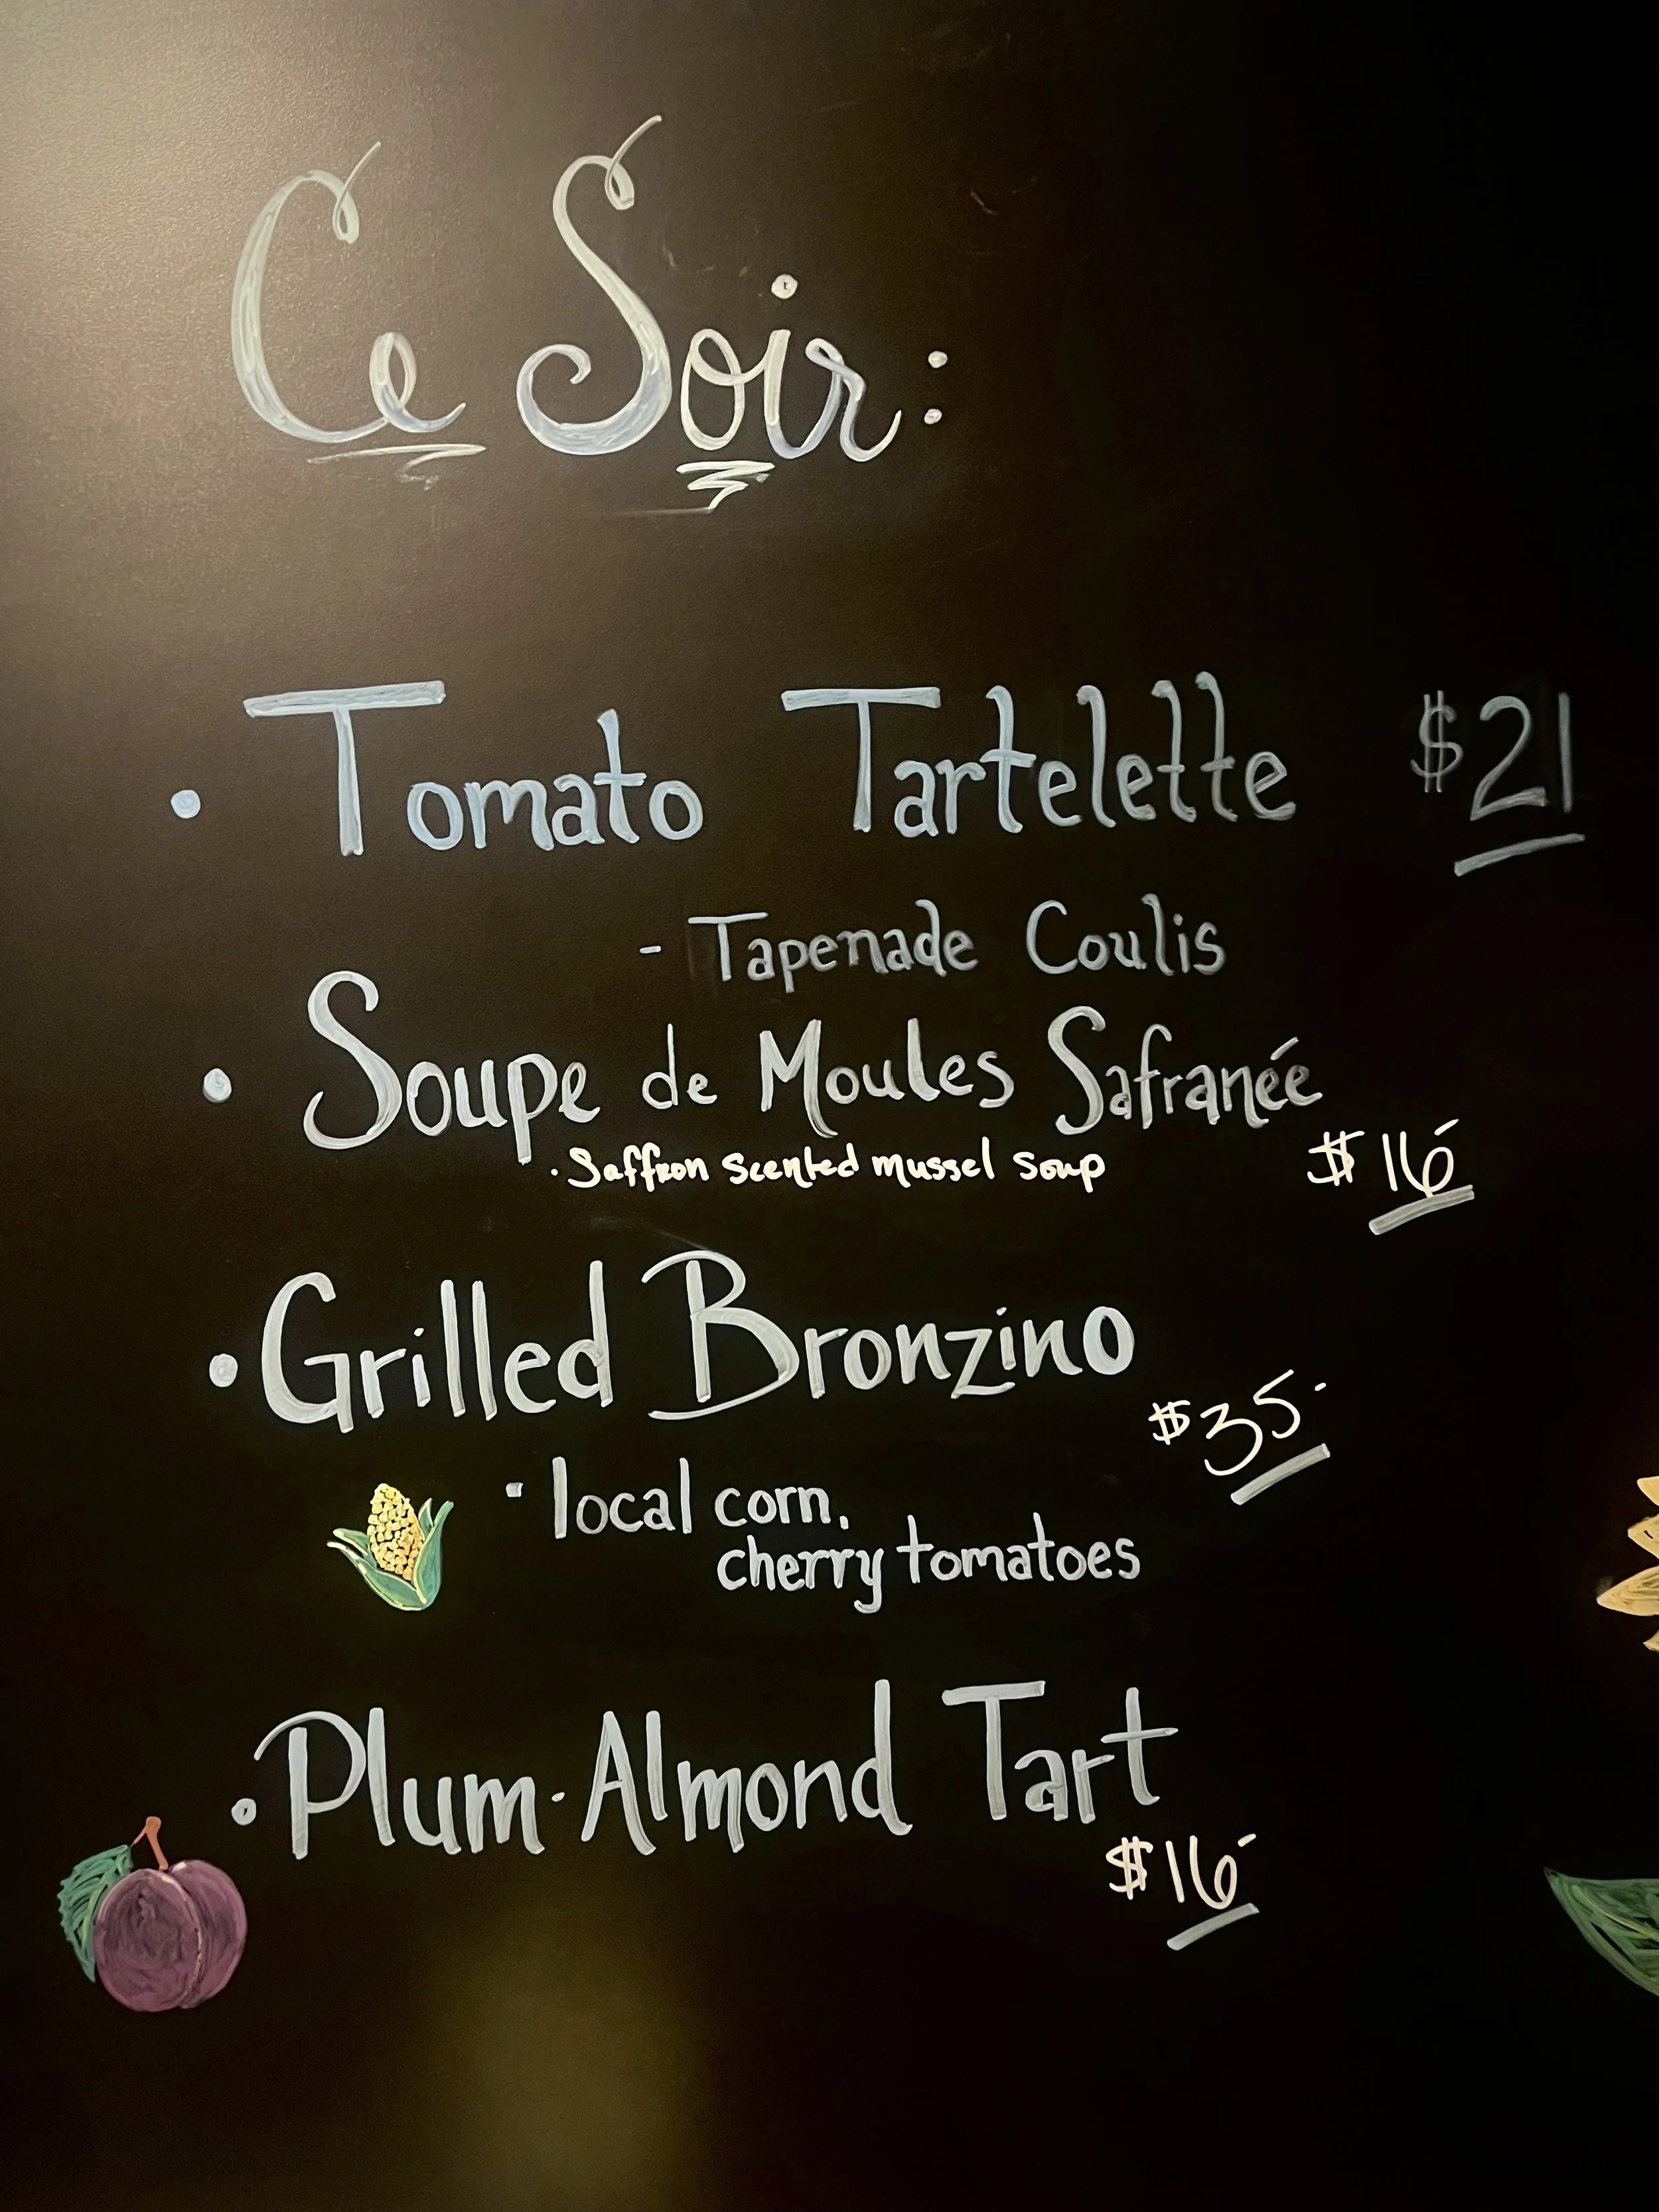 Ce Soir:
• Tomato Tartelette $21
- Tapenade Coulis
• Soupe de Moules Safranée
• Saffron Scented mussel soup $16
• Grilled Bronzino
$35
• local corn,
cherry tomatoes
• Plum-Almond Tart
$16